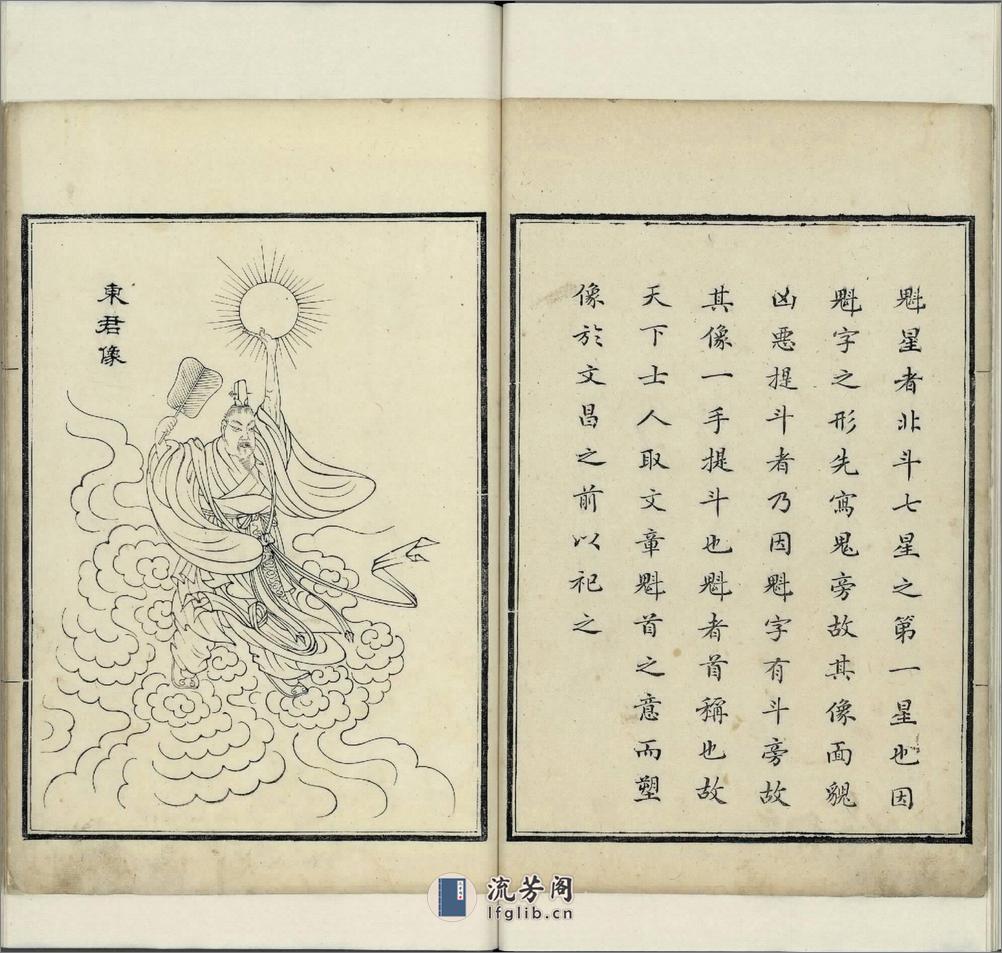 魁星者北斗七星之第一星也因
魁字之形先寫鬼旁故其像面貌
凶惡提斗者乃因魁字有斗旁故
其像一手提斗也魁者首稱也故
天下士人取文章魁首之意而塑
像於文昌之前以祀之
東君像
流芳阁
lfglib.cn